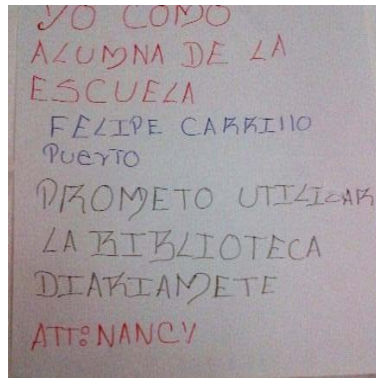 YO COMO
ALUMNA DE LA
ESCUELA
FELIPE CARRIllO
PUEYTO
PROMETO UTILICAR
LA BIBLIOTECA
DIARIAMETE
ATT: NANCY